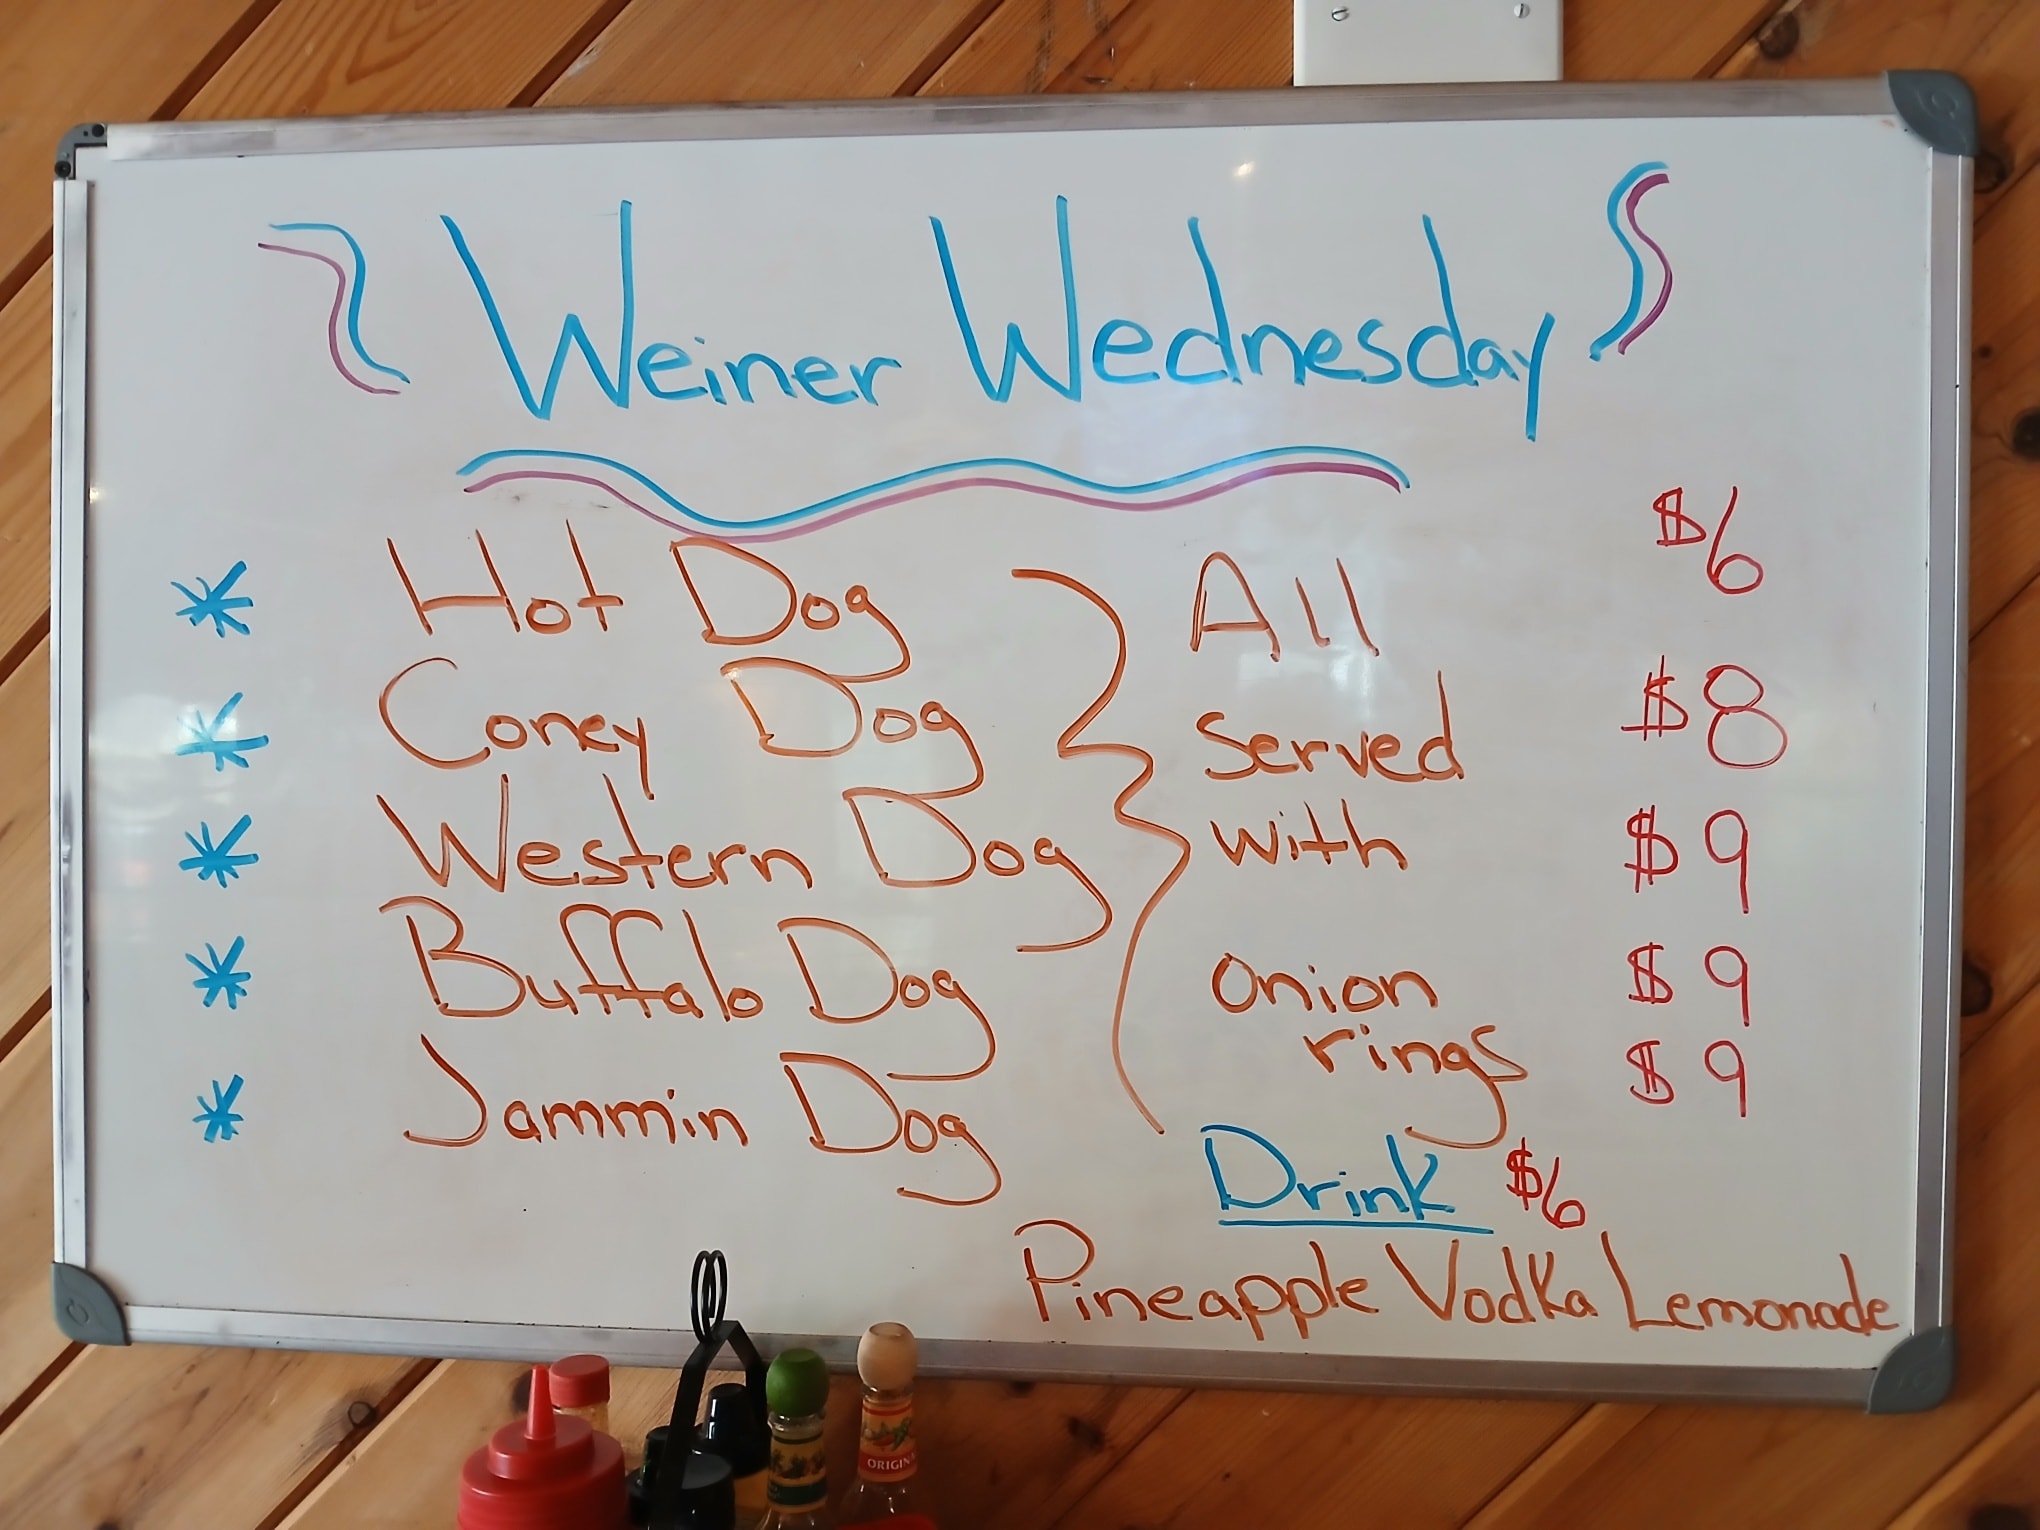 Weiner Wednesday
* Hot Dog All $6
* Coney Dog Served $8
* Western Dog with $9
* Buffalo Dog onion $9
rings
* Jammin Dog $9
Drink $6
Pineapple Vodka Lemonade
ORIGIN